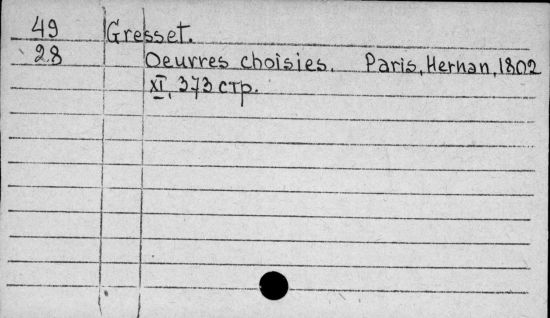 49 Gresset.
28 Oeuvres choisies. Paris, Herhan, 1802
XI, 373 стр.